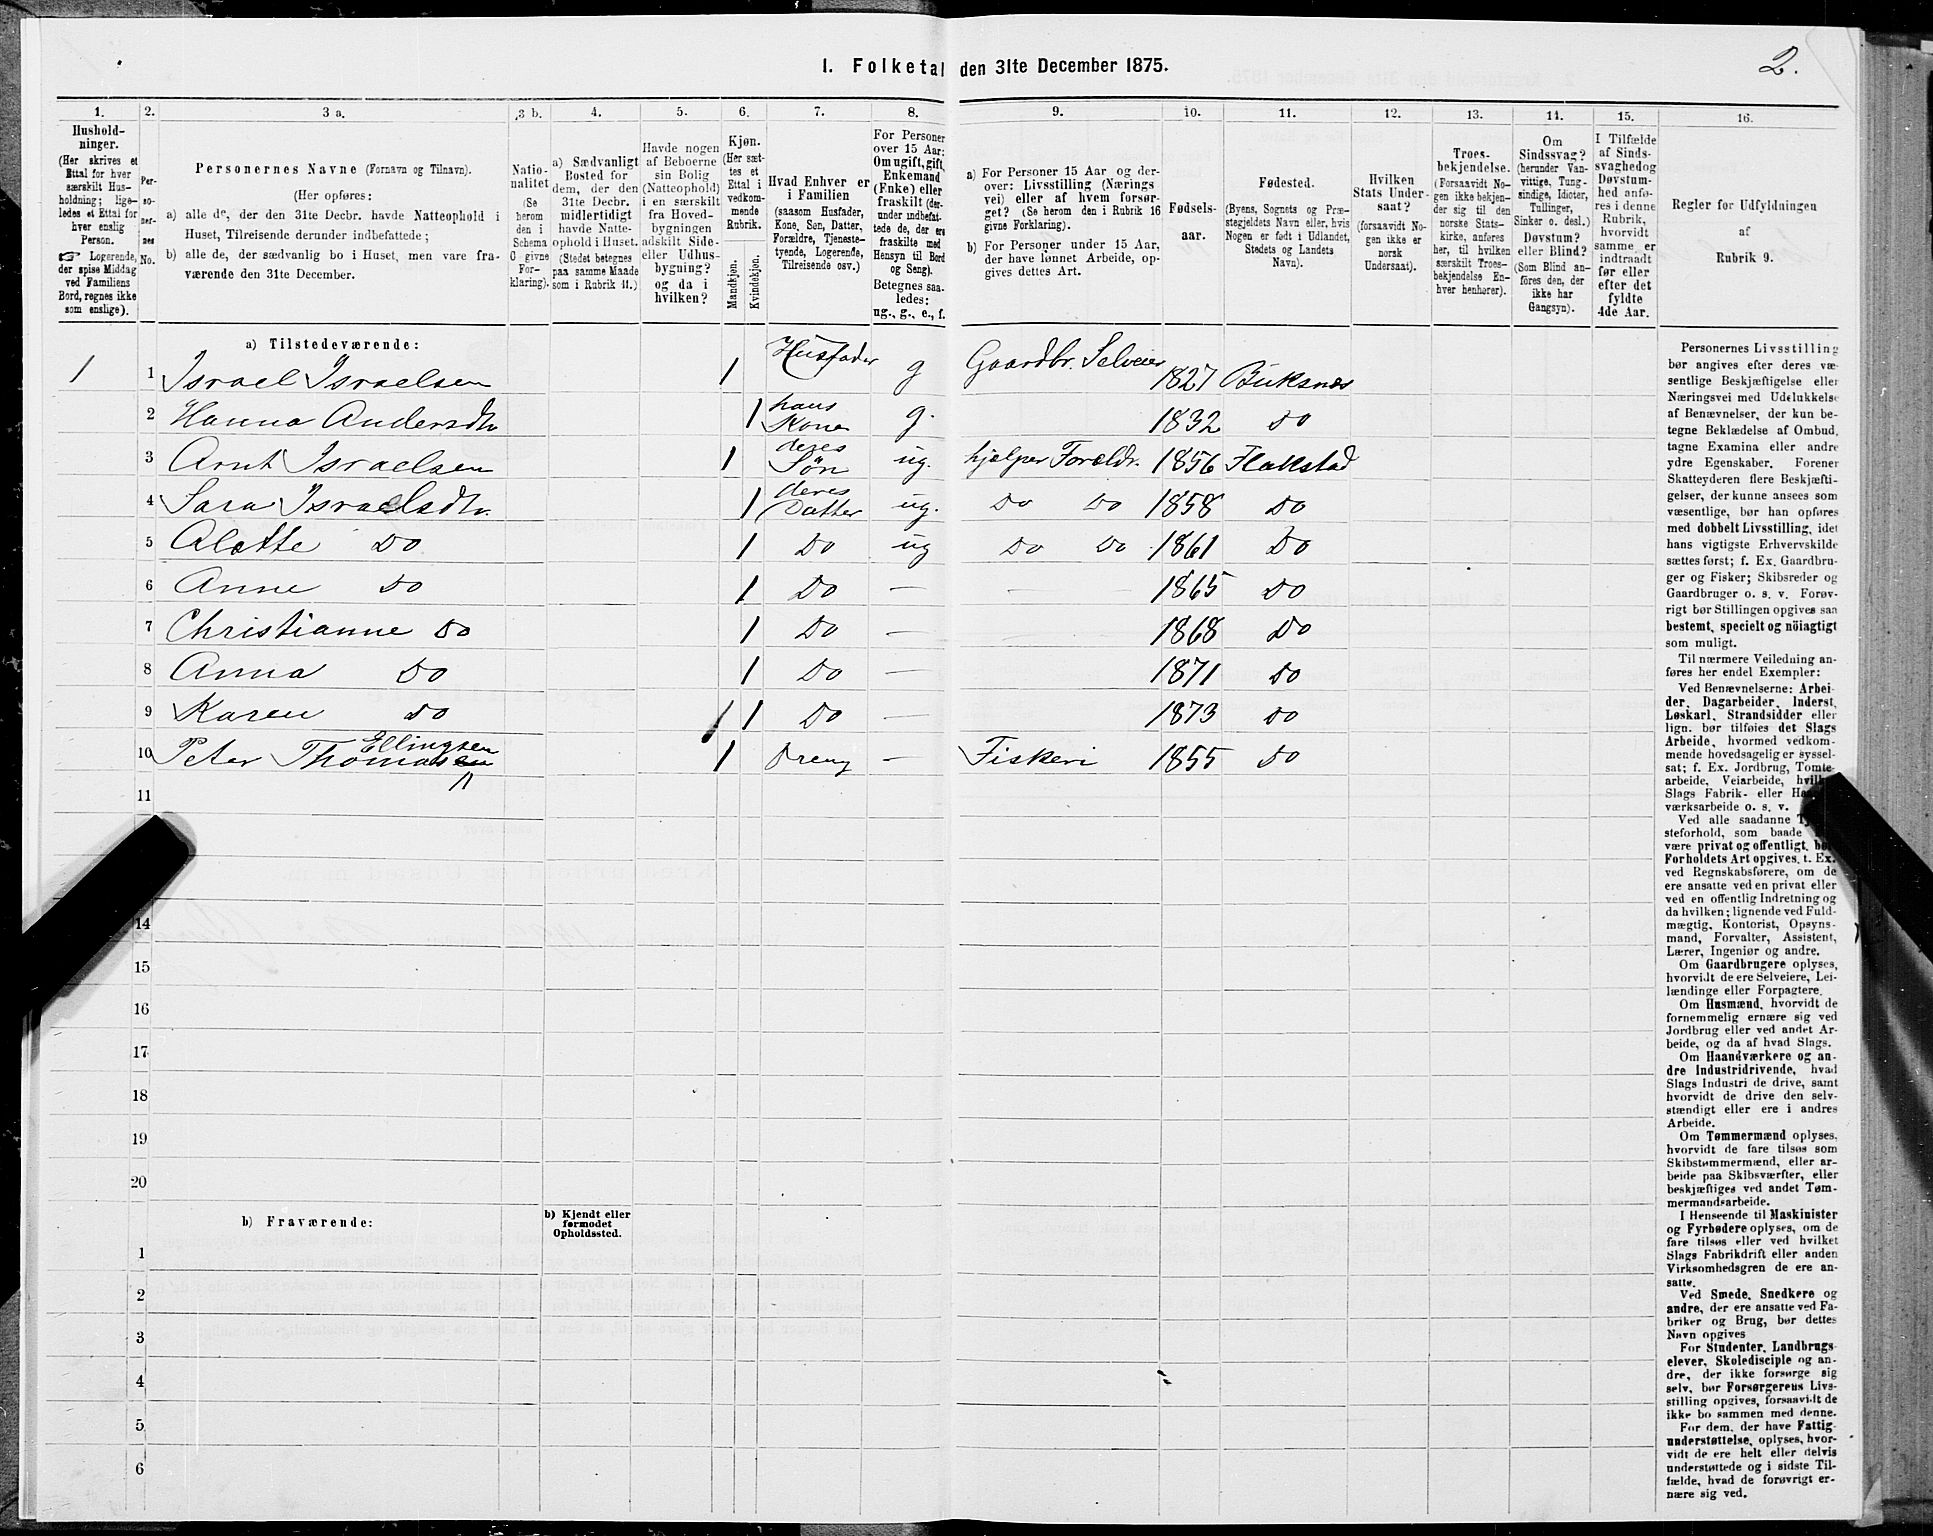 I. Folketal den 31te December 1875.
2.
1. 2. 3 a. 3 b. 4. 5. 6. 7. 8. 9. 10. 11. 12. 13. 14. 15. 16.
Hushold-
ninger.
(Her skrives et
Ettal for hver
særskilt Hus-
holdning; lige-
ledes et Ettal for
hver enslig
Person.
☞ Logerende,
der spise Middag
ved Familiens
Bord, regnes ikke
som enslige).
Per-
so-
ner-
nes
No.
Personernes Navne (Fornavn og Tilnavn).
(Her opføres:
a) alle de, der den 31te Decbr. havde Natteophold i
Huset, Tilreisende derunder indbefattede;
b) alle de, der sædvanlig bo i Huset, men vare fra-
værende den 31te December.
Natio-
nalitet
(Se
herom
den i
Schema
C givne
For-
klaring).
a) Sædvanligt
Bosted for
dem, der den
31te Decbr.
midlertidigt
havde Natte-
ophold i Huset.
(Stedet betegnes
paa samme Maade
som i Rubrik 11.)
Havde nogen
af Beboerne
sin Bolig
(Natteophold)
i en særskilt
fra Hoved-
bygningen
adskilt Side-
eller Udhus-
bygning?
og da i
hvilken?
Kjøn.
(Her sæt-
tes et
Ettal i
vedkom-
mende
Rubrik.
Mandkjøn.
Kvindekjøn.
Hvad Enhver er
i Familien
(saasom Husfader,
Kone, Søn, Datter,
Forældre, Tjeneste-
tyende, Logerende,
Tilreisende osv.)
For Personer
over 15 Aar:
Om ugift, gift,
Enkemand
(Enke) eller
fraskilt (der-
under indbefat-
tede de, der ere
fraskilte med
Hensyn til Bord
og Seng).
Betegnes saa-
ledes:
ug., g., e., f.
a) For Personer 15 Aar og der-
over: Livsstilling (Nærings
vei) eller af hvem forsør-
get? (Se herom den i Rubrik 16
givne Forklaring).
b) For Personer under 15 Aar,
der have lønnet Arbeide, op-
gives dettes Art.
Fødsels-
aar.
Fødested.
(Byens, Sognets og Præ-
stegjeldets Navn eller, hvis
Nogen er født i Udlandet,
Stedets og Landets
Navn).
Hvilken
Stats Under-
saat?
(forsaavidt No-
gen ikke er
norsk
Undersaat).
Troes-
bekjendelse.
(Forsaavidt No-
gen ikke bekjen-
der sig til den
norske Stats-
kirke, anføres
her, til hvilken
særskilt Troes-
bekjendelse En-
hver henhører).
Om
Sindssvag?
(herunder Van-
vittige, Tung-
sindige, Idioter,
Tullinger,
Sinker o. desl.)
Døvstum?
eller Blind?
(Som Blind an-
føres den, der
ikke har
Gangsyn).
I Tilfælde
af Sinds-
svaghed og
Døvstum-
hed anfø-
res i denne
Rubrik,
hvorvidt
samme er
indtraadt
før eller
efter det
fyldte
4de Aar.
Regler for Udfyldningen
af
Rubrik 9.
a) Tilstedeværende:
1 1 Israel Israelsen 1 Husfader g Gaardbr. Selveier 1827 Buksnes
2 Hanna Andersdtr 1 hans Kone g. 1832 Do
3 Arnt Israelsen 1 deres Søn ug. hjelper Foreldr. 1856 Flakstad
4 Sara Israelsdtr. 1 deres Datter ug. Do Do 1858 Do
5 Alette Do 1 Do ug Do Do 1861 Do
6 Anne Do 1 Do — — — 1865 Do
7 Christianne Do 1 Do — 1868 Do
8 Anna Do 1 Do — 1871 Do
9 Karen Do 1 1 Do — 1873 Do
10 Peter Thomassen Ellingsen 1 Dreng — Fiskeri 1855 Do
11
14
15
16
17
18
19
20
b) Fraværende:
b) Kjendt eller
formodet
Opholdssted.
1
2
3
4
5
6
Personernes Livsstilling
bør angives efter deres væ-
sentlige Beskjæftigelse eller
Næringsvei med Udelukkelse
af Benævnelser, der kun be-
tegne Beklædelse af Ombud,
tagne Examina eller andre
ydre Egenskaber. Forener
Skatteyderen flere Beskjæfti-
gelser, der kunne ansees som
væsentlige, bør han opføres
med dobbelt Livsstilling, idet
hans vigtigste Erhvervskilde
sættes først; f. Ex. Gaardbru-
ger og Fisker; Skibsreder og
Gaardbruger o. s. v. Forøv-
rigt bør Stillingen opgives saa
bestemt, specielt og nöiagtigt
som muligt.
Til nærmere Veiledning an-
føres her endel Exempler:
Ved Benævnelserne: Arbei-
der, Dagarbeider, Inderst,
Løskarl, Strandsidder eller
lign. bør tilføies det Slags
Arbeide, hvormed vedkom-
mende hovedsagelig er syssel-
sat; f. Ex. Jordbrug, Tomte-
arbeide, Veiarbeide, hvilket
Slags Fabrik- eller Haand-
værksarbeide o. s. v.
Ved alle saadanne Tjene-
steforhold, som baade
være privat og offentligt, bør
Forholdets Art opgives, t. Ex.
ved Regnskabsførere, om de
ere ansatte ved en privat eller
ved en offentlig Indretning og
da hvilken; lignende ved Fuld-
mægtig, Kontorist, Opsyns-
mand, Forvalter, Assistent,
Lærer, Ingeniør og andre.
Om Gaardbrugere oplyses,
hvorvidt de ere Selveiere, Lei-
lændinge eller Forpagtere.
Om Husmænd, hvorvidt de
fornemmelig ernære sig ved
Jordbrug eller ved andet Ar-
beide, og da af hvad Slags.
Om Haandværkere og an-
dre Industridrivende, hvad
Slags Industri de drive, samt
hvorvidt de drive den selv-
stændigt eller ere i andres
Arbeide.
Om Tømmermænd oplyses,
hvorvidt de fare tilsøs som
Skibstømmermænd, eller ar-
beide paa Skibsværfter, eller
beskjæftiges ved andet Tøm-
mermandsarbeide.
I Henseende til Maskinister
og Fyrbødere oplyses, om de
fare tilsøs eller ved hvilket
Slags Fabrikdrift eller anden
Virksomhedsgren de ere an-
satte.
Ved Smede, Snedkere og
andre, der ere ansatte ved Fa-
briker og Brug, bør dettes
Navn opgives
For Studenter, Landbrugs-
elever, Skoledisciple og an-
dre, der ikke forsørge sig
selv, bør Forsørgerens Livs-
stilling opgives, forsaavidt de
ikke bo sammen med denne.
For dem, der have Fattig-
understøttelse, oplyses, hvor-
vidt de ere helt eller delvis
understøttede og i sidste Til-
fælde, hvad de forøvrigt er-
nære sig ved.